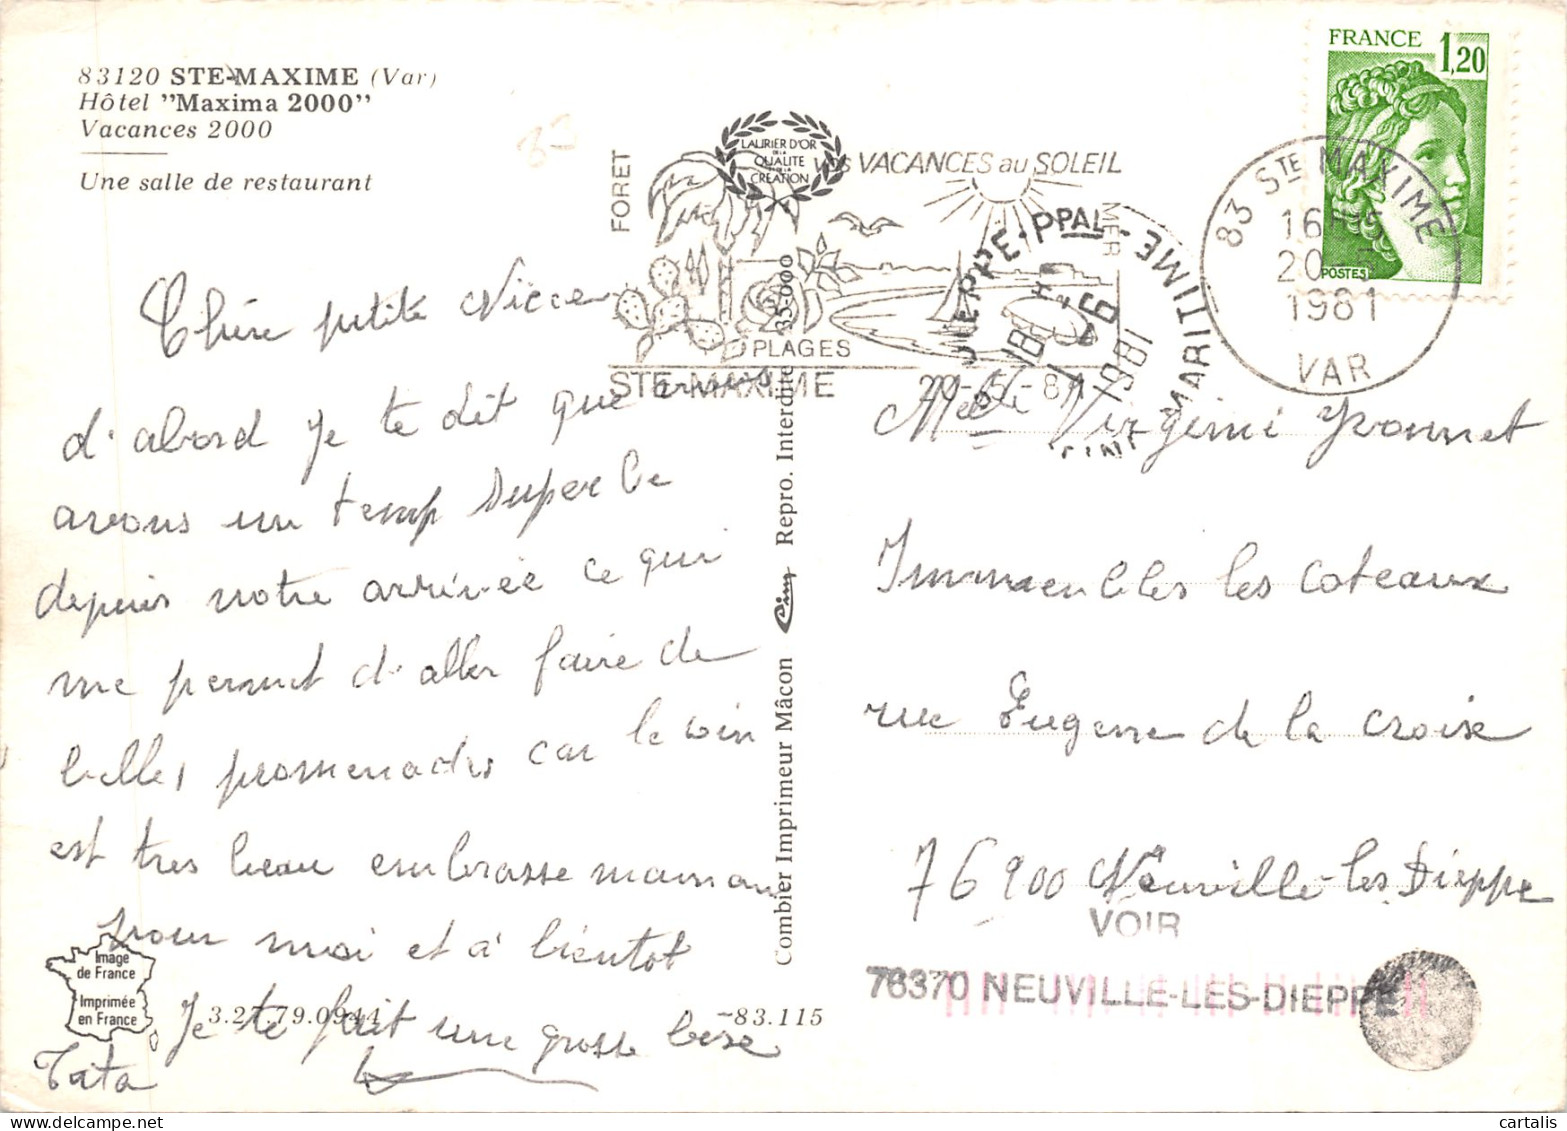 83120 STE-MAXIME (Var)
Hôtel "Maxima 2000"
Vacances 2000
Une salle de restaurant
Chère petite Nièce
d'abord je te dit que
avons un temp superbe
depuis notre arrivée ce qui
me permet d'aller faire de
belles promenades car le coin
est tres beau embrasse maman
pour moi et à bientot
Je te fait une grosse bise
Tata
Image
de France
Imprimée
en France
3.2 79.0944
83.115
Combier Imprimeur Mâcon Cim Repro. Interdite 35-000
LAURIER D'OR
DE LA
QUALITE
ET DE LA
CREATION
FORET
VOS VACANCES au SOLEIL
MER
PLAGES
STE-MAXIME
DIEPPE-PPAL - SEINE MARITIME
18H
1981
FRANCE 1,20
POSTES
83 STE MAXIME
16H15
20-5
1981
VAR
Melle Virginie Yvonnet
Immeubles les coteaux
rue Eugene de la croise
76900 Neuville-les Dieppe
VOIR
76370 NEUVILLE-LES-DIEPPE
cartalis